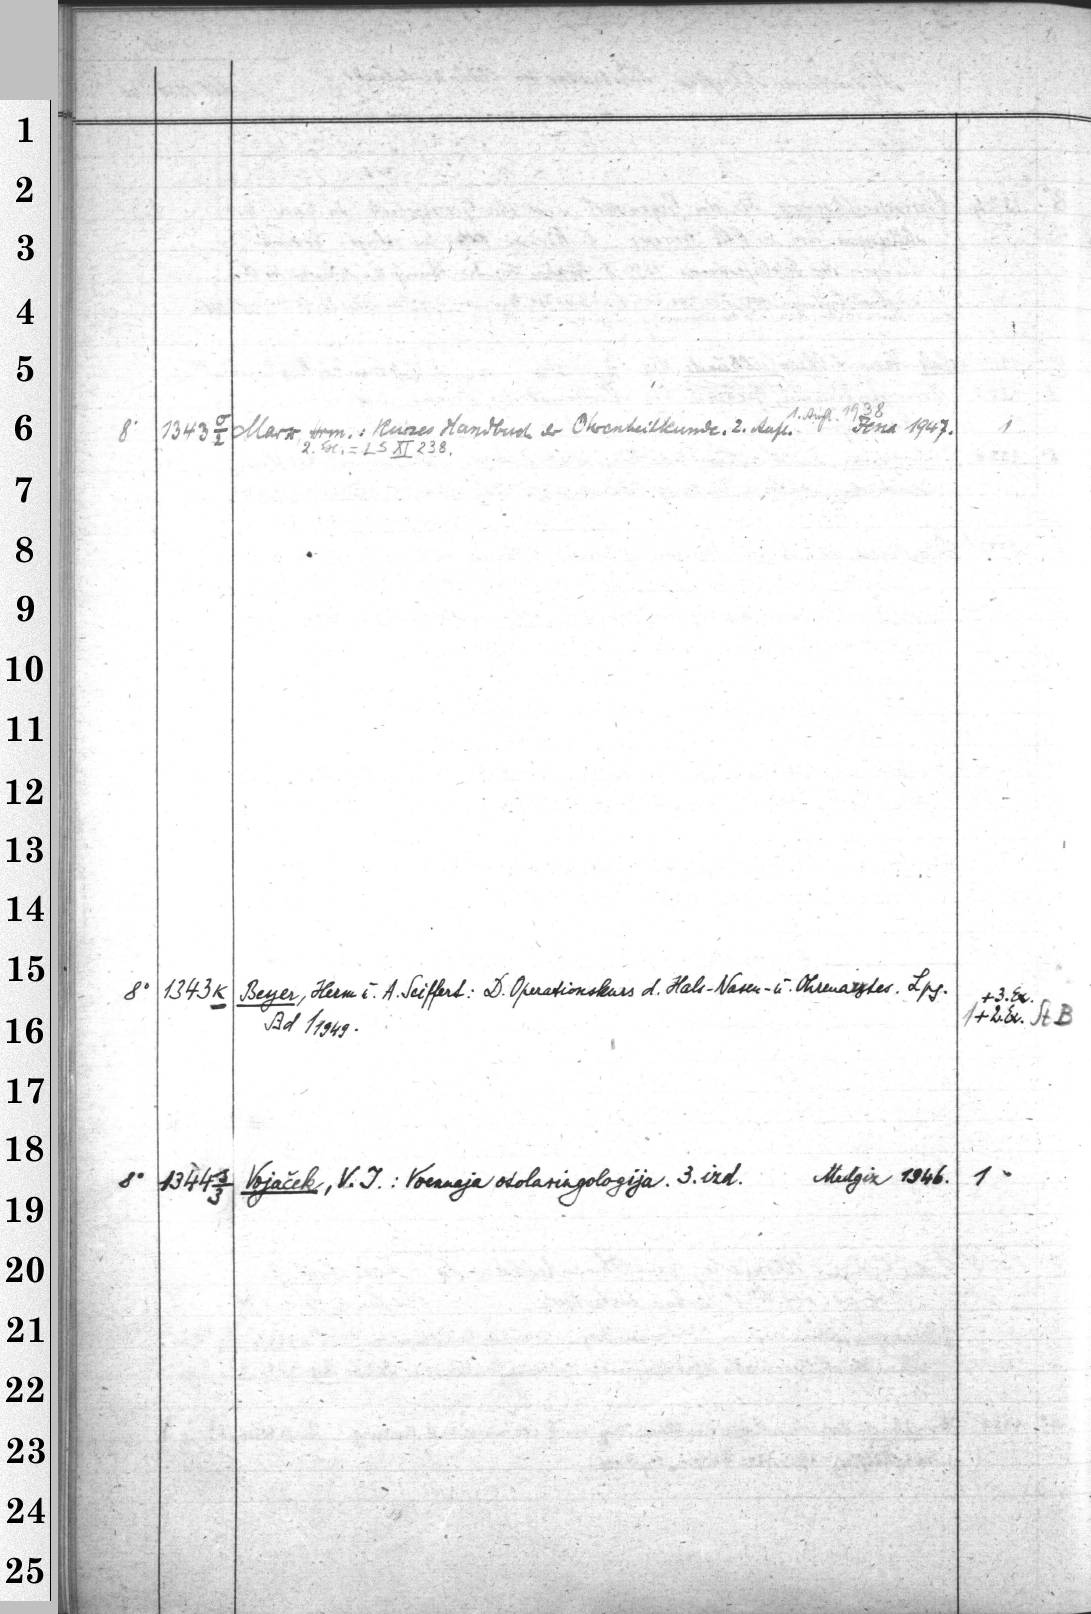 1
2
3
4
5
6
7
8
9
10
11
12
13
14
15
16
17
18
19
20
21
22
23
24
25
1. Aufl. 1938
8° 1343 Marx, Herm.: Kurzes Handbuch der Ohrenheilkunde. 2. Aufl. Jena 1947. 1
2. Ex. = LS XI 238.
8° 1343 K Beyer, Herm u. A. Seiffert: D. Operationskurs d. Hals-Nasen-u. Ohrenarztes. Lpg. +3. Ex.
Bd 1 1949. 1 +2. Ex. St B
8° 1344 3/3 Vojaček, V. I.: Voennaja otolaringologija. 3. izd. Medgiz 1946. 1